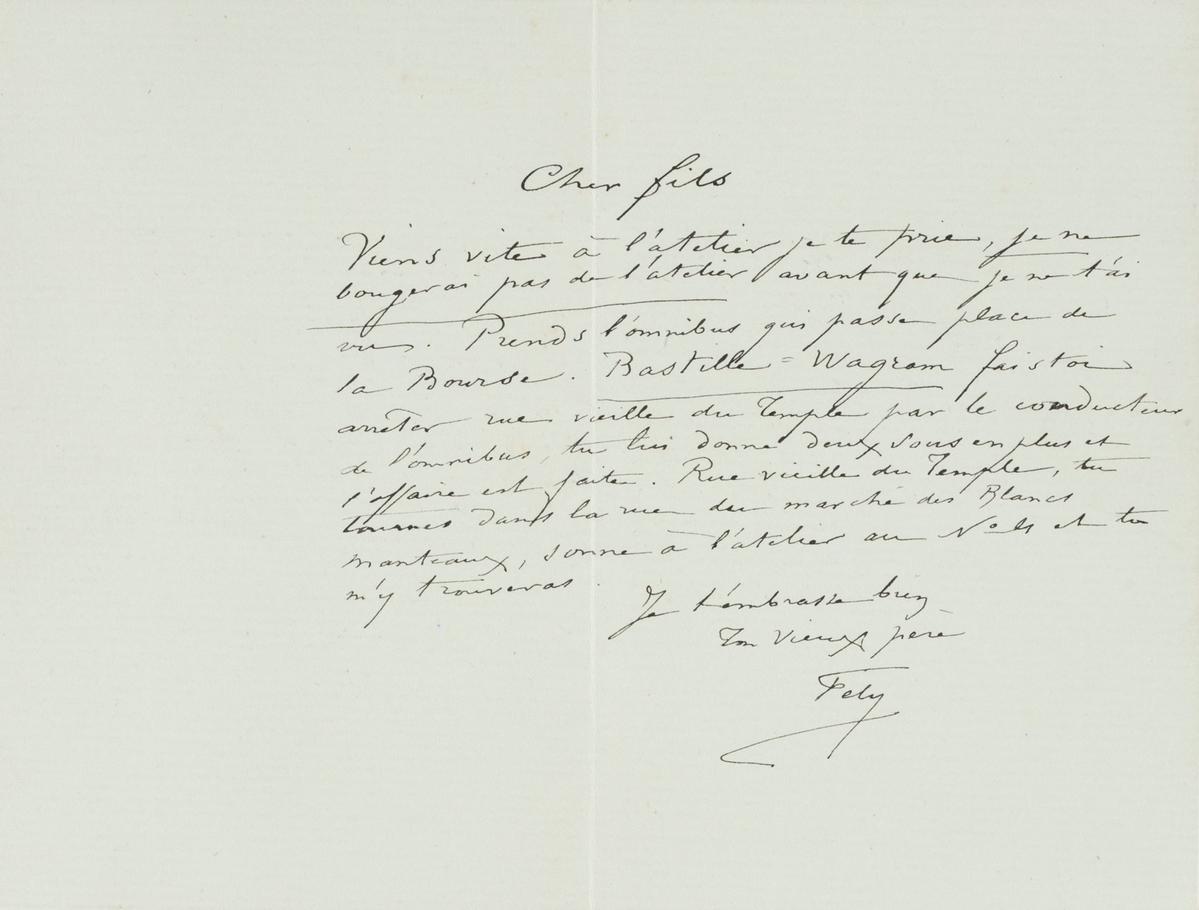 Cher fils
Viens vite à l'atelier je te prie, je ne
bougerai pas de l'atelier avant que je ne t'ai
vu. Prends l'omnibus qui passe place de
la Bourse. Bastille = Wagram fais toi
arrêter rue vieille du Temple par le conducteur
de l'omnibus, tu lui donne deux sous en plus et
l'affaire est faite. Rue vieille du Temple, tu
tournes dans la rue du marché des Blancs
manteaux, sonne à l'atelier au No et tu
m'y trouveras.
Je t'embrasse bien
Ton vieux père
Fély